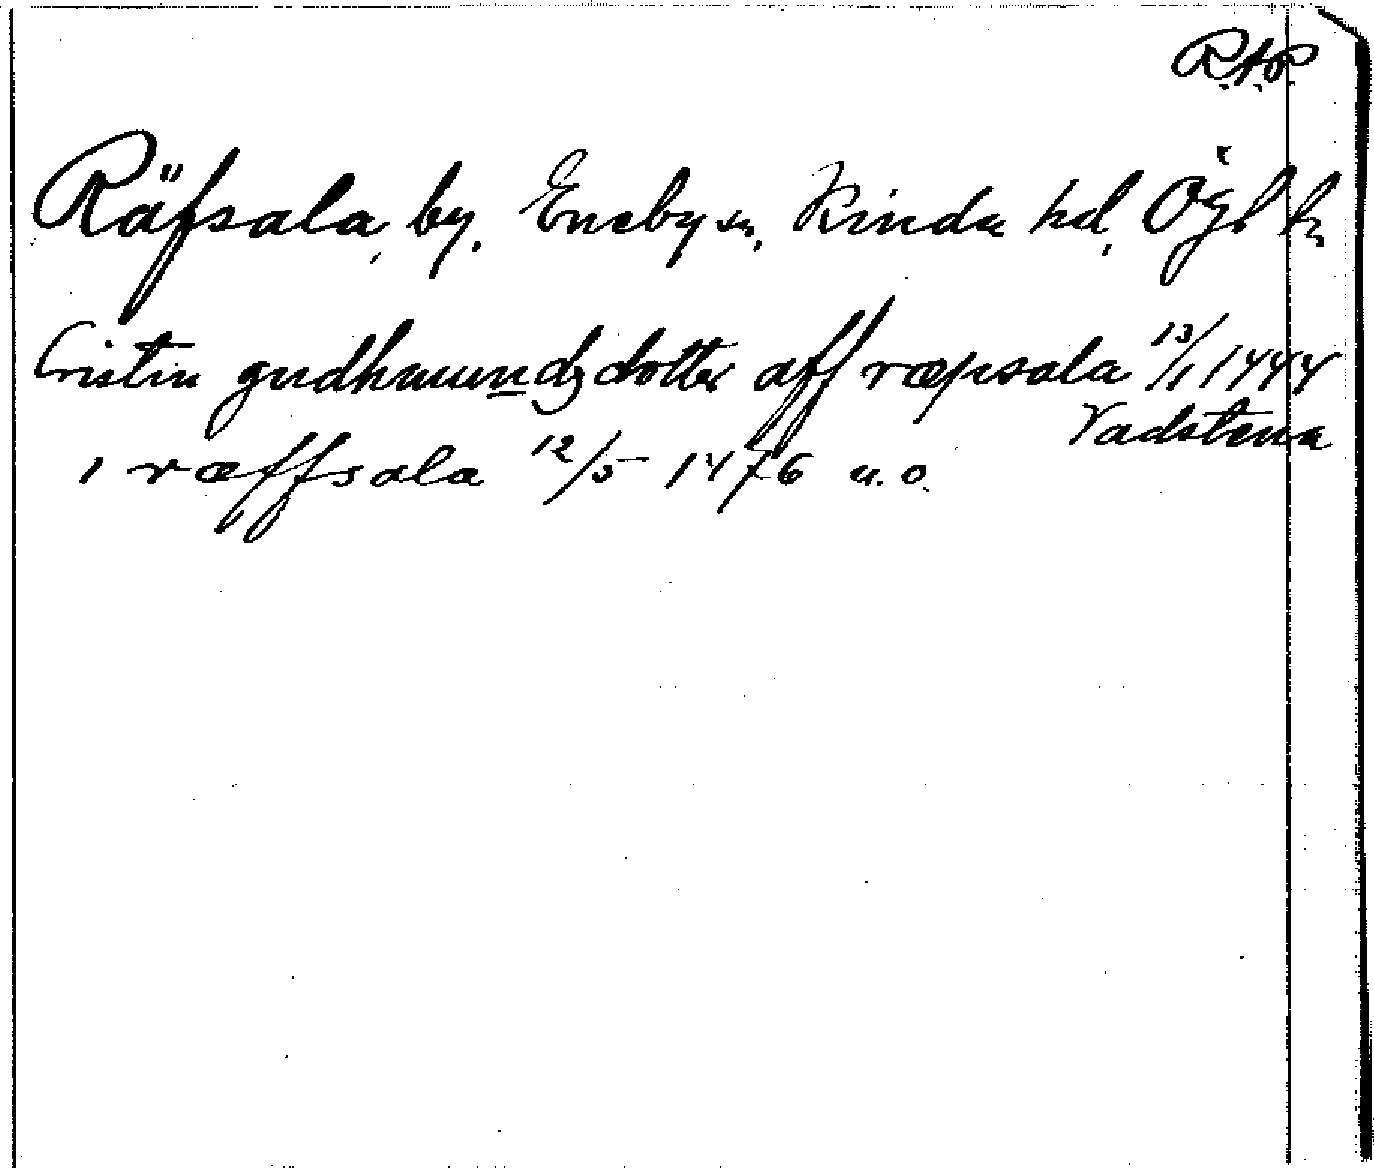 R.A.P.
Räfsala, by, Eneby sn, Kinda hd, Ögl ln
Cristin gudhmundz dotter aff ræpsala 13/1 1444
Vadstena
i ræffsala 12/5 1476 u.o.